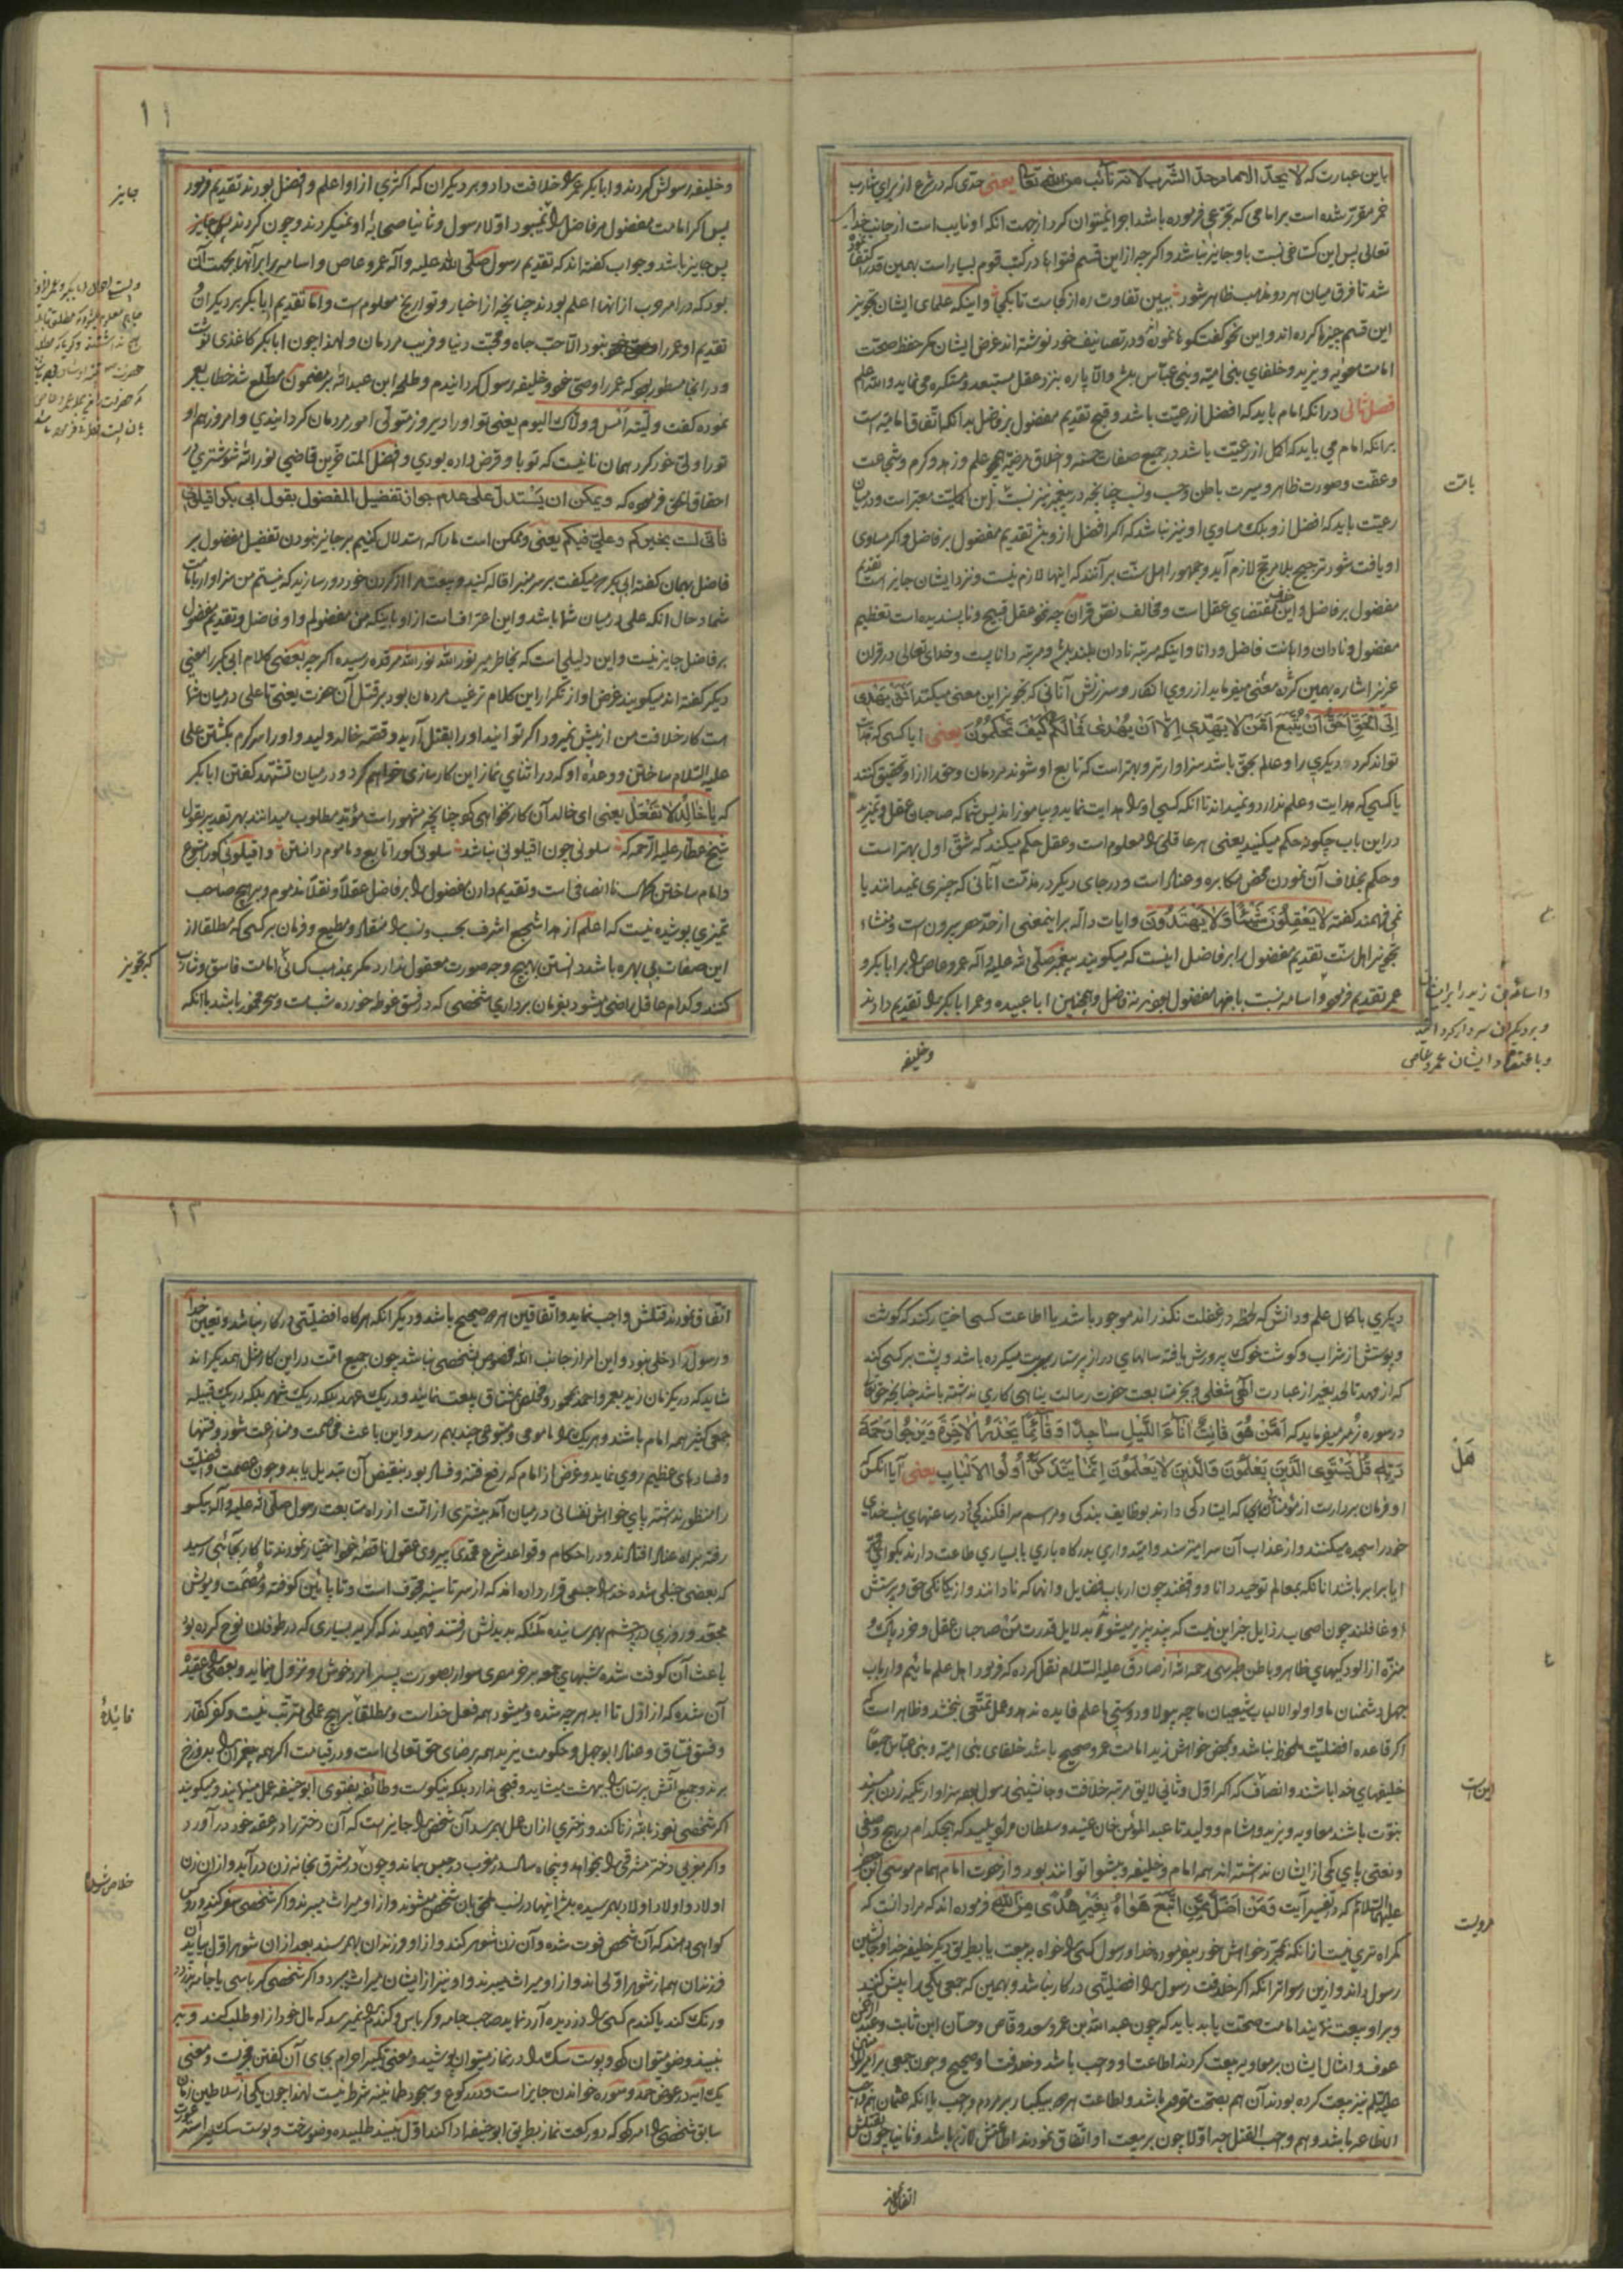 باین عبارت که لا یحدّ الامام حدّ الشرب لانه نائب من الله تعالی یعنی حدّی که در شرع از برای شارب
خمر مقرّر شده است بر امامی که تجرّعی فرموده باشد اجرا نمیتوان کرد از جهت آنکه او نایب است از جانب خدا
تعالی پس این کستاخی نسبت باو جایز نباشد و اکر چه از این قسم فتواها در کتب قوم بسیار است بهمین قدر اکتفا
شد تا فرق میان هر دو مذهب ظاهر شود ببین تفاوت ره از کجاست تا بکجا و اینکه علمای ایشان تجویز
این قسم چیزها کرده اند و این نحو کفتکوها نموده و در تصانیف خود نوشته اند غرض ایشان مکر حفظ صحّت
امامت معویه و یزید و خلفای بنی امیّه و بنی عبّاس بوده و الّا پاره بنزد عقل مستبعد و مستکره می نماید و الله اعلم
فصل ثانی در آنکه امام باید که افضل از رعیّت باشد و قبح تقدیم مفضول بر فاضل بدانکه اتّفاق امامیّه است
بر آنکه امام می باید که اکمل از رعیّت باشد در جمیع صفات حسنه و اخلاق مرضیّه همچو علم و زهد و کرم و شجاعت
و عفّت و صورت ظاهر و سیرت باطن و حسب و نسب چنانچه در پیغمبر نیز نسبت باین اکملیّت معتبر است و در میان
رعیّت باید که افضل ازو بلکه مساوی او نیز نباشد که اکر افضل ازو بود تقدیم مفضول بر فاضل و اکر مساوی
او یافت شود ترجیح بلا مرجّح لازم آید و جمهور اهل سنّت بر آنند که اینها لازم نیست و نزد ایشان جایز است تقدیم
مفضول بر فاضل و این خلاف مقتضای عقل است و مخالف نصّ قرآن چه نحو عقل قبیح و ناپسندیده است تعظیم
مفضول و نادان و اهانت فاضل و دانا و اینکه مرتبه نادان بلند باشد و مرتبه دانا پست و خدای تعالی در قرآن
عزیز اشاره بهمین کرده معنی میفرماید از روی انکار و سرزنش آنانی که تجویز این معنی میکنند افمن یهدی
الی الحقّ احقّ ان یتّبع امّن لا یهدّی الّا ان یهدی فما لکم کیف تحکمون یعنی ایا کسی که هدایت
تواند کرد دیکری را و عالم بحق باشد سزاوارتر و بهتر است که تابع او شوند مردمان و حق را از او تحقیق کنند
یا کسی که هدایت و علم ندارد و نمیداند تا آنکه کسی او را هدایت نماید و بیاموزاند پس شما که صاحبان عقل و تمیزید
در این باب چکونه حکم میکنید یعنی هر عاقلی را معلوم است و عقل حکم میکند که شقّ اول بهتر است
و حکم بخلاف آن نمودن محض مکابره و عناد است و در جای دیکر در مذمّت آنانی که چیزی نمیدانند یا
نمی فهمند کفته لا یعقلون شیئاً و لا یهتدون و ایات دالّه بر اینمعنی از حدّ حصر بیرون است و منشاء
تجویز اهل سنّت تقدیم مفضول را بر فاضل اینست که میکویند پیغمبر صلّی الله علیه و آله عمرو عاص را بر ابابکر و
عمر تقدیم فرمود و اسامه نسبت باینها مفضول بود نه فاضل و همچنین ابا عبیده و عمر ابابکر را تقدیم دادند
بابت
و اسامة بن زید را بر ایشان
و بر دیکران سردار کردانید
و باعتقاد ایشان عمرو عاص
وخلیفه
۱۱
و خلیفه رسولش کردند و ابابکر عمر را خلافت داد و بر دیکران که اکثری از او اعلم و افضل بودند تقدیم فرمود
پس اکر امامت مفضول بر فاضل روا نمیبود اوّلا رسول و ثانیا صحابه او نمیکردند و چون کردند پس جایز
پس جایز باشد و جواب کفته اند که تقدیم رسول صلّی الله علیه و آله عمرو عاص و اسامه را بر آنها بجهت آن
بود که در امر حرب از آنها اعلم بودند چنانچه از اخبار و تواریخ معلوم است و امّا تقدیم ابابکر بر دیکران و
تقدیم او عمر را نبود الّا حبّ جاه و محبّت دنیا و فریب مردمان و لهذا چون ابابکر کاغذی نوشت
و در انجا مسطور بود که عمر را وصی خود و خلیفه رسول کردانیدم و طلحه ابن عبدالله بر مضمون مطّلع شد خطاب بعمر
نموده کفت ولّیته امس و ولّاک الیوم یعنی تو او را دیروز متولّی امور مردمان کردانیدی و امروز هم او
تو را ولی خود کرد همان نانیست که تو باو قرض داده بودی و افضل المتاخّرین قاضی نور الله شوشتری در
احقاق الحق فرموده که و یمکن ان یستدلّ علی عدم جواز تفضیل المفضول بقول ابی بکر اقیلونی
فانّی لست بخیرکم و علیّ فیکم یعنی و ممکن است ما را که استدلال کنیم بر جایز نبودن تفضیل مفضول بر
فاضل بهمان کفته ابی بکر که میکفت بر سر منبر اقاله کنید و بیعت مرا از کردن خود دور سازید که نیستم من سزاوار بامامت
شما و حال آنکه علی در میان شما باشد و این اعتراف است از او باینکه من مفضولم و او فاضل و تقدیم مفضول
بر فاضل جایز نیست و این دلیلی است که بخاطر میر نور الله نوّر الله مرقده رسیده اکر چه بعضی کلام ابی بکر را معنی
دیکر کفته اند میکویند غرض او از تکرار این کلام ترغیب مردمان بود بر قتل آن حضرت یعنی تا علی در میان شما
است کار خلافت من از پیش نمیرود اکر توانید او را بقتل آرید و قصّه خالد ولید و او را سرکرم بکشتن علی
علیه السّلام ساختن و وعده او که در اثنای نماز این کارسازی خواهم کرد و در میان تشهّد کفتن ابابکر
که یا خالد لا تفعل یعنی ای خالد آن کار نخواهی کرد چنانچه مشهور است مؤیّد مطلوب میدانند بهر تقدیر بقول
شیخ عطّار علیه الرّحمه که سلونی چون اقیلونی نباشد سلونی کو را تابع و ماموم دانستن و اقیلونی کو را متبوع
و امام ساختن کمال ناانصافی است و تقدیم دادن مفضول را بر فاضل عقلاً و نقلاً مذموم و بر هیچ صاحب
تمیزی پوشیده نیست که اعلم ازهد اشجع اشرف بحسب و نسب را منقاد و مطیع و فرمان بر کسی که مطلقا از
این صفات بی بهره باشد دانستن بهیچ وجه صورت معقول ندارد مکر بمذهب کسانی امامت فاسق و شارب
کنند و کدام عاقل راضی میشود بفرمان برداری شخصی که در فسق غوطه خورده شب مست و سحر مخمور باشد با آنکه
جایز
که تجویز
دیکری با کمال علم و دانش که لحظه در غفلت نکذراند موجود باشد یا اطاعت کسی اختیار کند که کوشت
و پوستش از شراب و کوشت خوک پرورش یافته سالهای دراز پرستار بت میکرده باشد و پشت بر کسی کند
که از مهد تا لحد بغیر از عبادت الهی شغلی و بجز متابعت حضرت رسالت پناهی کاری نداشته باشد چنانچه حق تعالی
در سوره زمر میفرماید که امّن هو قانت آناء اللّیل ساجدا و قائما یحذر الاخرة و یرجوا رحمة
ربّه قل یستوی الّذین یعلمون و الّذین لا یعلمون انّما یتذکّر اولوا الالباب یعنی آیا آنکس
او فرمان بردار است از مؤمنان که ایستادکی دارند بوظایف بندکی و مراسم سرافکندکی در ساعتهای شب خدای
خود را سجده میکنند و از عذاب آن سرا میترسند و امیدواری بدرکاه باری با بسیاری طاعت دارند بکو ای محمّد
ایا برابر باشد انانکه بمعالم توحید دانا و واقفند چون ارباب فضایل و انها که نادانند و از یکانکی حق و پرستش
او غافلند چون اصحاب رذایل جز این نیست که پند پذیر میشوند بدلایل قدرت من صاحبان عقل و خرد پاک و
منزّه از آلودکیهای ظاهر و باطن طبرسی رحمه الله از صادق علیه السّلام نقل کرده که فرمود اهل علم مائیم و ارباب
جهل دشمنان ما و اولوا الالباب شیعیان ما چه بی ولا و دوستی ما علم فایده ندهد و عمل تمتّعی نبخشد و ظاهر است که
اکر قاعده افضلیّت ملحوظ نباشد و بمحض خواهش زید امامت عمرو صحیح باشد خلفای بنی امیّه و بنی عبّاس جمیعاً
خلیفهای خدا باشند و انصاف که اکر اوّل و ثانی لایق مرتبه خلافت و جانشینی رسول بوده سزاوار تکیه زدن بر مسند
نبوّت باشند معاویه و یزید و هشام و ولید تا عبد المؤمن خان عنید و سلطان مراد پلید که هیچکدام در هیچ وصفی
و نعتی پای کمی از ایشان نداشته اند همه امام و خلیفه و پیشوا توانند بود و از حضرت امام همام موسی ابن جعفر
علیهما السّلام که در تفسیر آیت و من اضلّ ممّن اتّبع هواه بغیر هدی من الله فرموده اند که مراد انست که
کمراه تری نیست از آنکه بمجرّد خواهش خود بیفرموده خدا و رسول کسی را خواه به بیعت یا بطریق دیکر خلیفه خدا و جانشین
رسول داند و ازین رسواتر آنکه اکر خلافت رسول را افضلیّتی در کار نباشد و بهمین که جمعی یکی را پیش کنند
و بر او بیعت نمایند امامت صحّت یابد باید که چون عبد الله بن عمر و سعد وقّاص و حسّان ابن ثابت و عبد الرحمن
عوف و امثال ایشان بر معاویه بیعت کردند اطاعت او واجب باشد و خلافت او صحیح و چون جمعی بر امیر المؤمنین
علیه السّلم نیز بیعت کرده بودند آن هم بصحّت مقرون باشد و اطاعت هر دو بیکبار بر مردم واجب با آنکه عثمان هم واجب
الاطاعه باشد و هم واجب القتل چه اوّلا چون بر بیعت او اتّفاق نمودند اطاعتش لازم باشد و ثانیا چون بقتلش
هل
این است
مرویست
اتفاق نمودند
۱۲
اتّفاق نمودند قتلش واجب نماید و اتّفاقین هر دو صحیح باشد و دیکر آنکه هرکاه افضلیّتی در کار نباشد و تعیین خدا
و رسول را دخلی نبود و این امر از جانب الله مخصوص بشخصی نباشد چون جمیع امّت در این کار مثل همدیکراند
شاید که در یکزمان زید بعمرو و احمد بمحمود و مخلص بمشتاق بیعت نمایند و در یک عهد بلکه در یک شهر بلکه در یک قبیله
جمعی کثیر همه امام باشند و هر یک را مامومی و متبوعی چند بهم رسد و این باعث مخاصمت و منازعت شود و فتنها
و فسادهای عظیم روی نماید و غرض از امام که رفع فتنه و فساد بود بنقیض آن تبدیل یابد و چون عصمت و افضلیّت
را منظور نداشته پای خواهش نفسانی در میان آمد بیشتری از امّت از راه متابعت رسول صلّی الله علیه و آله یکسو
رفته براه عناد افتادند و در احکام و قواعد شرع محمّدی پیروی عقول ناقصه خود اختیار نمودند تا کار بجائی رسید
که بعضی حنبلی شده خدا را جسمی قرار داده اند که از سر تا سینه مجوّف است و تا پائین کوفته و مصمت و پوش
مجعّد و روزی درد چشم بهم رسانیده ملئکه بدیدنش رفتند فهمیدند که کریه بسیاری که در طوفان نوح کرده بود
باعث آن کوفت شده شبهای جمعه بر خر مصری سوار بصورت پسر امرد خوش رو نزول نماید و بعضی را عقیده
آن شده که از اوّل تا ابد هر چه شده و میشود همه فعل خداست و مطلقا بر هیچ عملی مترتّب نیست و کفر کفّار
و فسق فسّاق و عناد ابو جهل و حکومت یزید همه برضای حق تعالی است و در قیامت اکر همه پیغمبران را بدوزخ
برند و جمیع آتش پرستان را ببهشت میشاید و قبحی ندارد بلکه نیکوست و طائفه بفتوی ابو حنیفه عمل مینمایند و میکویند
اکر شخصی نعوذ بالله زنا کند و دختری از ان عمل بهم رسد آن شخص را جایز است که آن دختر را در عقد خود در آورد
و اکر مغربی دختر مشرقی را بخواهد و پنجاه سال در مغرب در حبس بماند و چون در مشرق بخانه زن در آید و از ان زن
اولاد و اولاد اولاد بهم رسیده باشد اینها در نسب ملحق بان شخص میشوند و از او میراث میبرند و اکر شخصی سفر کند و دو کس
کواهی دهند که آن شخص فوت شده و آن زن شوهر کند و از او فرزندان بهم رسند بعد از ان شوهر اوّل بیاید آن
فرزندان همه از شوهر اوّلی اند و از او میراث میبرند و او نیز از ایشان میراث میبرد و اکر شخصی کرباسی یا جامه بدزدد
و رنک کند یا کندم کسی را دزدیده آرد نماید صاحب جامه و کرباس و کندم را نمیرسد که مال خود از او طلب کند و به
نبیذ وضو میتوان کرد و پوست سک را در نماز میتوان پوشید و معنی تکبیر احرام بجای آن کفتن مجزیست و معنی
یک آیه در عوض حمد و سوره خواندن جایز است و در رکوع و سجود طمانینه شرط نیست لهذا چون یکی از سلاطین زمان
سابق شخصی را امر کرد که دو رکعت نماز بطریق ابو حنیفه ادا کند اوّل نبیذ طلبیده وضو ساخت و پوست سک
فائدهٔ
خلاص شود